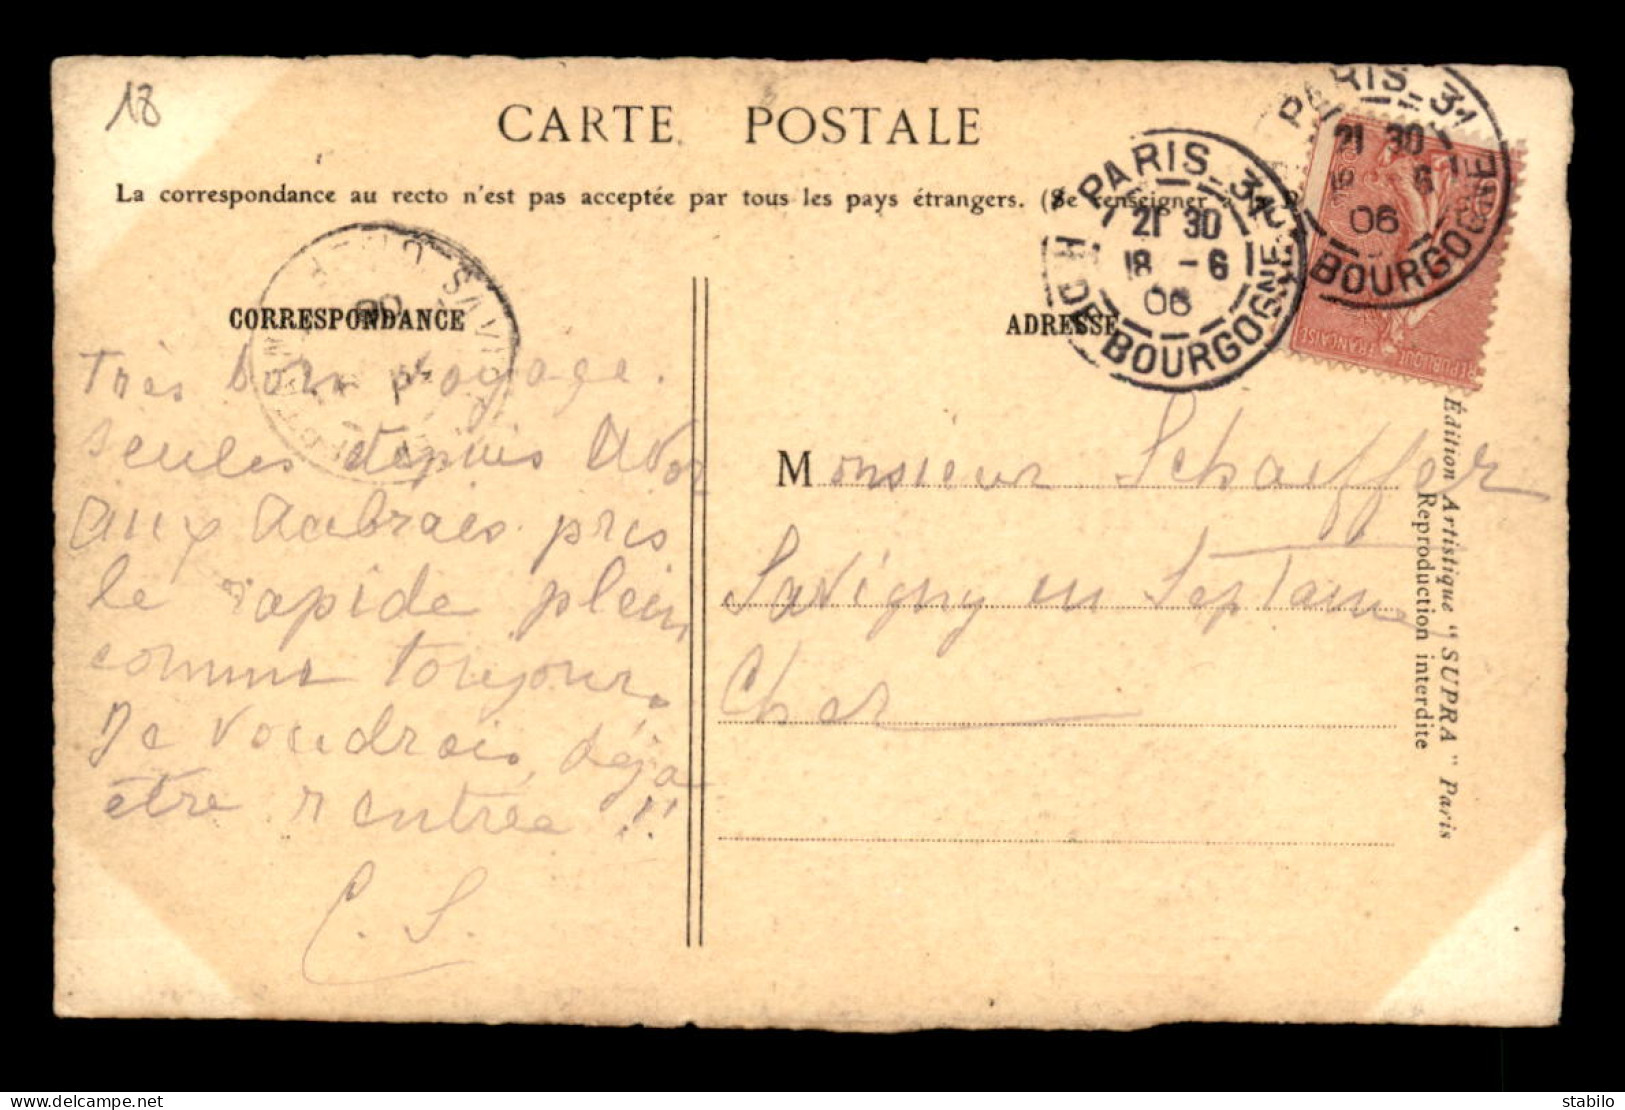 18
CARTE POSTALE
La correspondance au recto n'est pas acceptée par tous les pays étrangers. (Se renseigner à la P
PARIS_31
21 30
18 -6
06
H DE BOURGOGNE
PARIS_31
21 30
6
06
BOURGOGNE
REPUBLIQUE FRANÇAISE
SAVIGNY
CORRESPONDANCE
Très bon voyage.
seules depuis Avor
aux Aubrais pris
le rapide plein
comme toujours.
Je voudrais déjà
être rentrée !!
C. S.
ADRESSE
Monsieur Schaeffer
Savigny en Septaine
Cher
Édition Artistique "SUPRA" Paris
Reproduction interdite
delcampe.net
stabilo